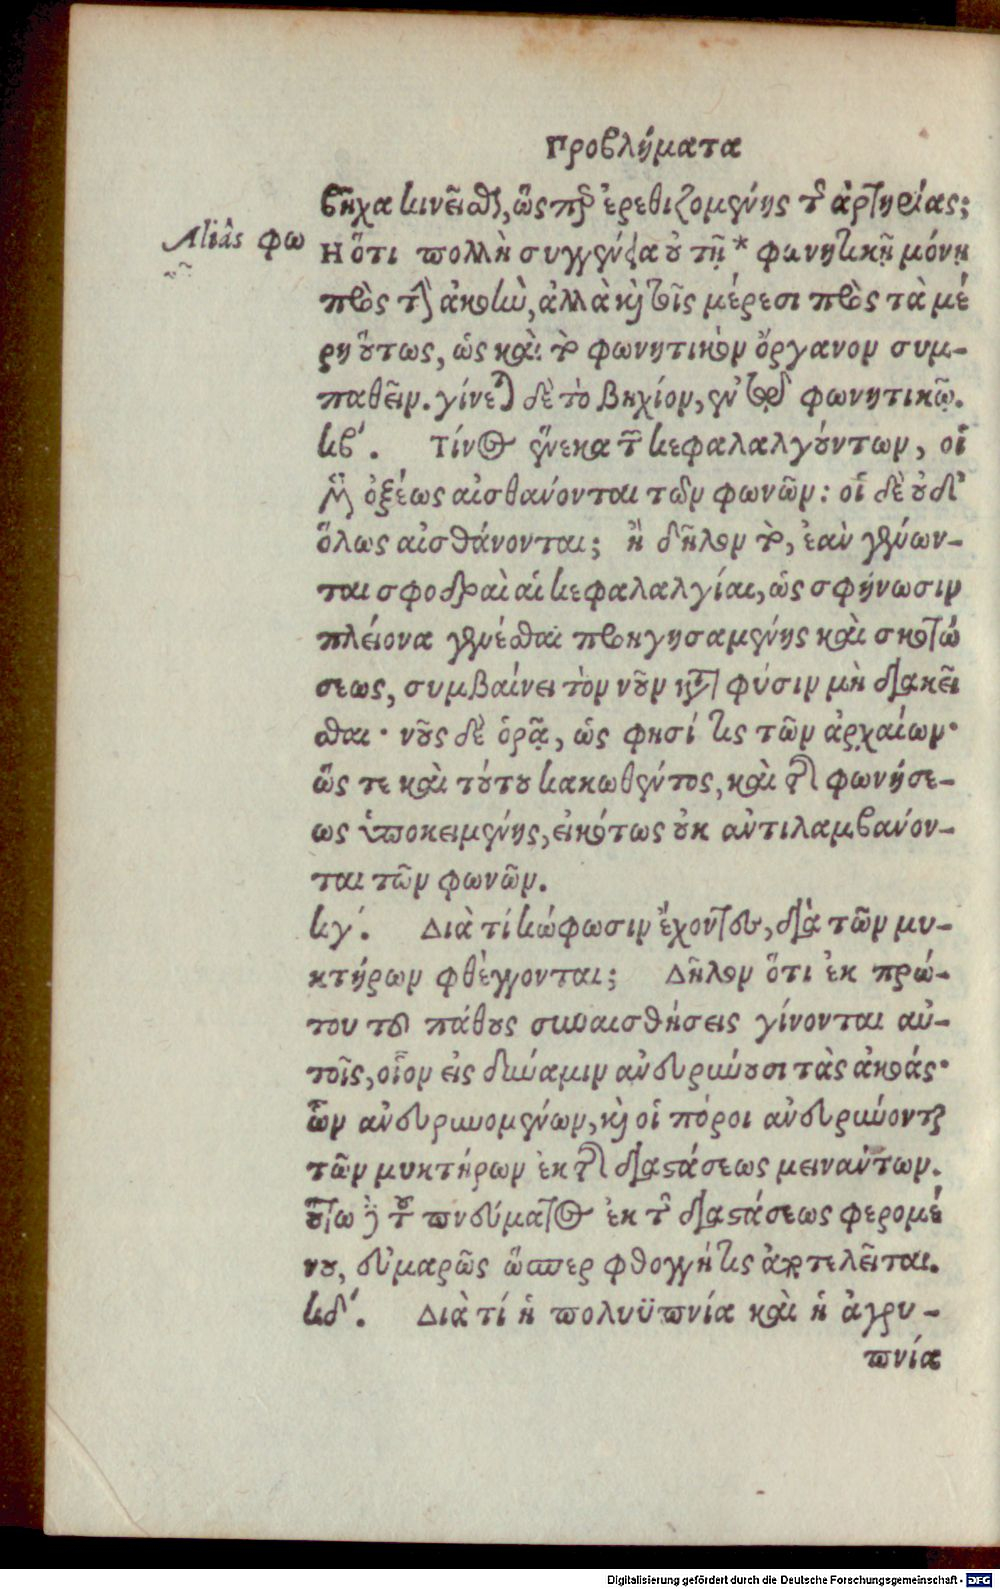 Προβλήματα
βῆχα κινεῖσθαι, ὥσπερ ἐρεθιζομένης τῆς ἀρτηρίας;
Aliâs φω
Η ὅτι πολλὴ συγγένεια οὐ τῇ * φωνητικῇ μόνῃ
πρὸς τὴν ἀκοὴν, ἀλλὰ καὶ τοῖς μέρεσι πρὸς τὰ μέ
ρη οὕτως, ὡς καὶ τὸ φωνητικὸν ὄργανον συμ-
παθεῖν. γίνεται δὲ τὸ βηχίον, ἐν τῷ φωνητικῷ.
κβ΄. Τίνος ἕνεκα τῶν κεφαλαλγούντων, οἱ
μὲν ὀξέως αἰσθάνονται τῶν φωνῶν: οἱ δὲ οὐδ᾽
ὅλως αἰσθάνονται; ἢ δῆλον ὅτι, ἐὰν γένων-
ται σφοδραὶ αἱ κεφαλαλγίαι, ὡς σφήνωσιν
πλείονα γενέσθαι προηγησαμένης καὶ σκοτώ
σεως, συμβαίνει τὸν νοῦν κατὰ φύσιν μὴ διακεῖ
σθαι· νοῦς δὲ ὁρᾷ, ὡς φησί τις τῶν ἀρχαίων·
ὥς τε καὶ τούτου κακωθέντος, καὶ τῆς φωνήσε-
ως ὑποκειμένης, εἰκότως οὐκ ἀντιλαμβάνον-
ται τῶν φωνῶν.
κγ΄. Διὰ τί κώφωσιν ἔχοντες, διὰ τῶν μυ-
κτήρων φθέγγονται; Δῆλον ὅτι ἐκ πρώ-
του τοῦ πάθους συναισθήσεις γίνονται αὐ-
τοῖς, οἷον εἰς δύναμιν ἀνευρύνουσι τὰς ἀκοάς·
ὧν ἀνευρυνομένων, καὶ οἱ πόροι ἀνευρύνονται
τῶν μυκτήρων ἐκ τῆς διαστάσεως μεινάντων.
οὕτω γὰρ τοῦ πνεύματος ἐκ τῆς διαστάσεως φερομέ
νου, εὐμαρῶς ὥσπερ φθογγή τις ἀποτελεῖται.
κδ΄. Διὰ τί ἡ πολυϋπνία καὶ ἡ ἀγρυ-
πνία
Digitalisierung gefördert durch die Deutsche Forschungsgemeinschaft - DFG